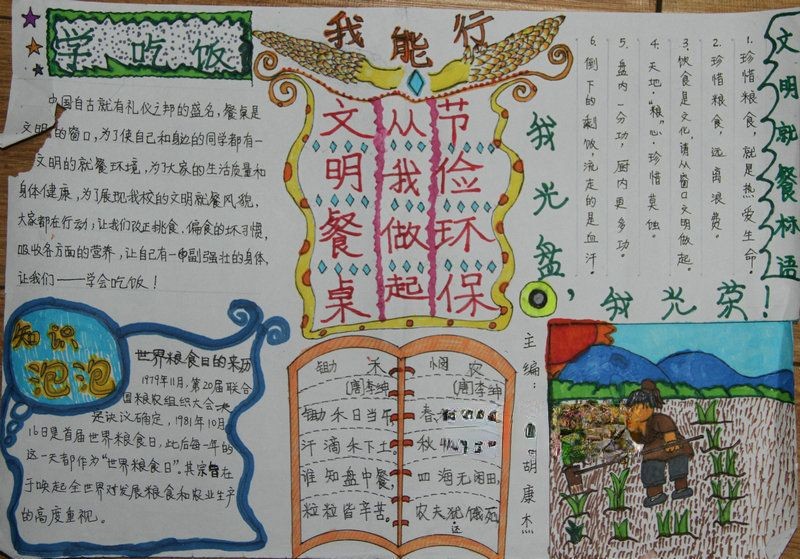 学吃饭
中国自古就有礼仪之邦的盛名，餐桌是
文明的窗口，为了使自己和身边的同学都有一
文明的就餐环境，为了大家的生活质量和
身体健康，为了展现我校的文明就餐风貌，
大家都在行动；让我们改正挑食，偏食的坏习惯，
吸收各方面的营养，让自己有一副强壮的身体，
让我们——学会吃饭！
我能行
节俭环保
从我做起
文明餐桌
我光盘，我光荣！
文明就餐标语
1. 珍惜粮食，就是热爱生命。
2. 珍惜粮食，远离浪费。
3. 饮食是文化，请从窗口文明做起。
4. 天地“粮”心，珍惜莫蚀。
5. 盘内一分功，厨内更多功。
6. 倒下的剩饭，流走的是血汗。
知识
泡泡
世界粮食日的来历
1979年11月，第20届联合
国粮农组织大会决
是决议确定，1981年10月
16日是首届世界粮食日，此后每一年的
这一天都作为“世界粮食日”。其宗旨在
于唤起全世界对发展粮食和农业生产
的高度重视。
锄禾
(唐)李绅
锄禾日当午，
汗滴禾下土。
谁知盘中餐，
粒粒皆辛苦。
悯农
(唐)李绅
春
秋
四海无闲田，
农夫犹饿死
还
主编：
胡康杰